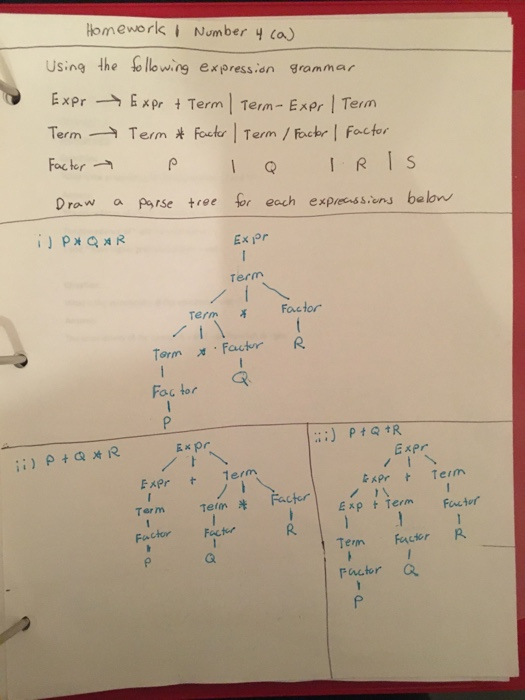 Homework 1 Number 4 (a)
Using the following expression grammar
Expr → Expr + Term | Term - Expr | Term
Term → Term * Factor | Term / Factor | Factor
Factor → P | Q | R | S
Draw a parse tree for each expreassions below
i) P * Q * R
Expr
Term
Term * Factor
Term * Factor R
Factor Q
P
ii) P + Q * R
Expr
Expr + Term
Term Term * Factor
Factor Factor R
P Q
iii) P + Q + R
Expr
Expr + Term
Exp + Term Factor
Term Factor R
Factor Q
P